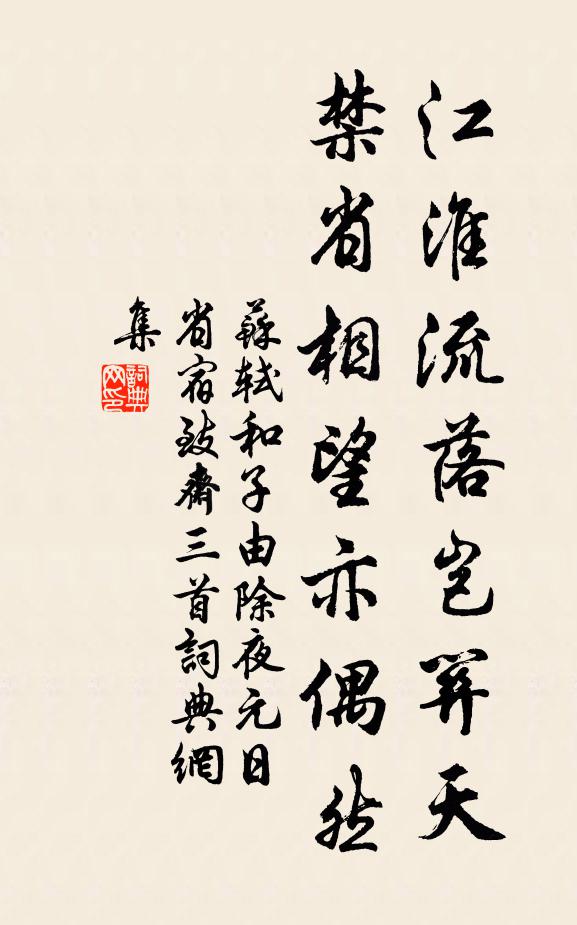 江淮流落豈關天
禁省相望亦偶然
蘇軾和子由除夜元日
省宿致齋三首詞典網
集
詞典网印